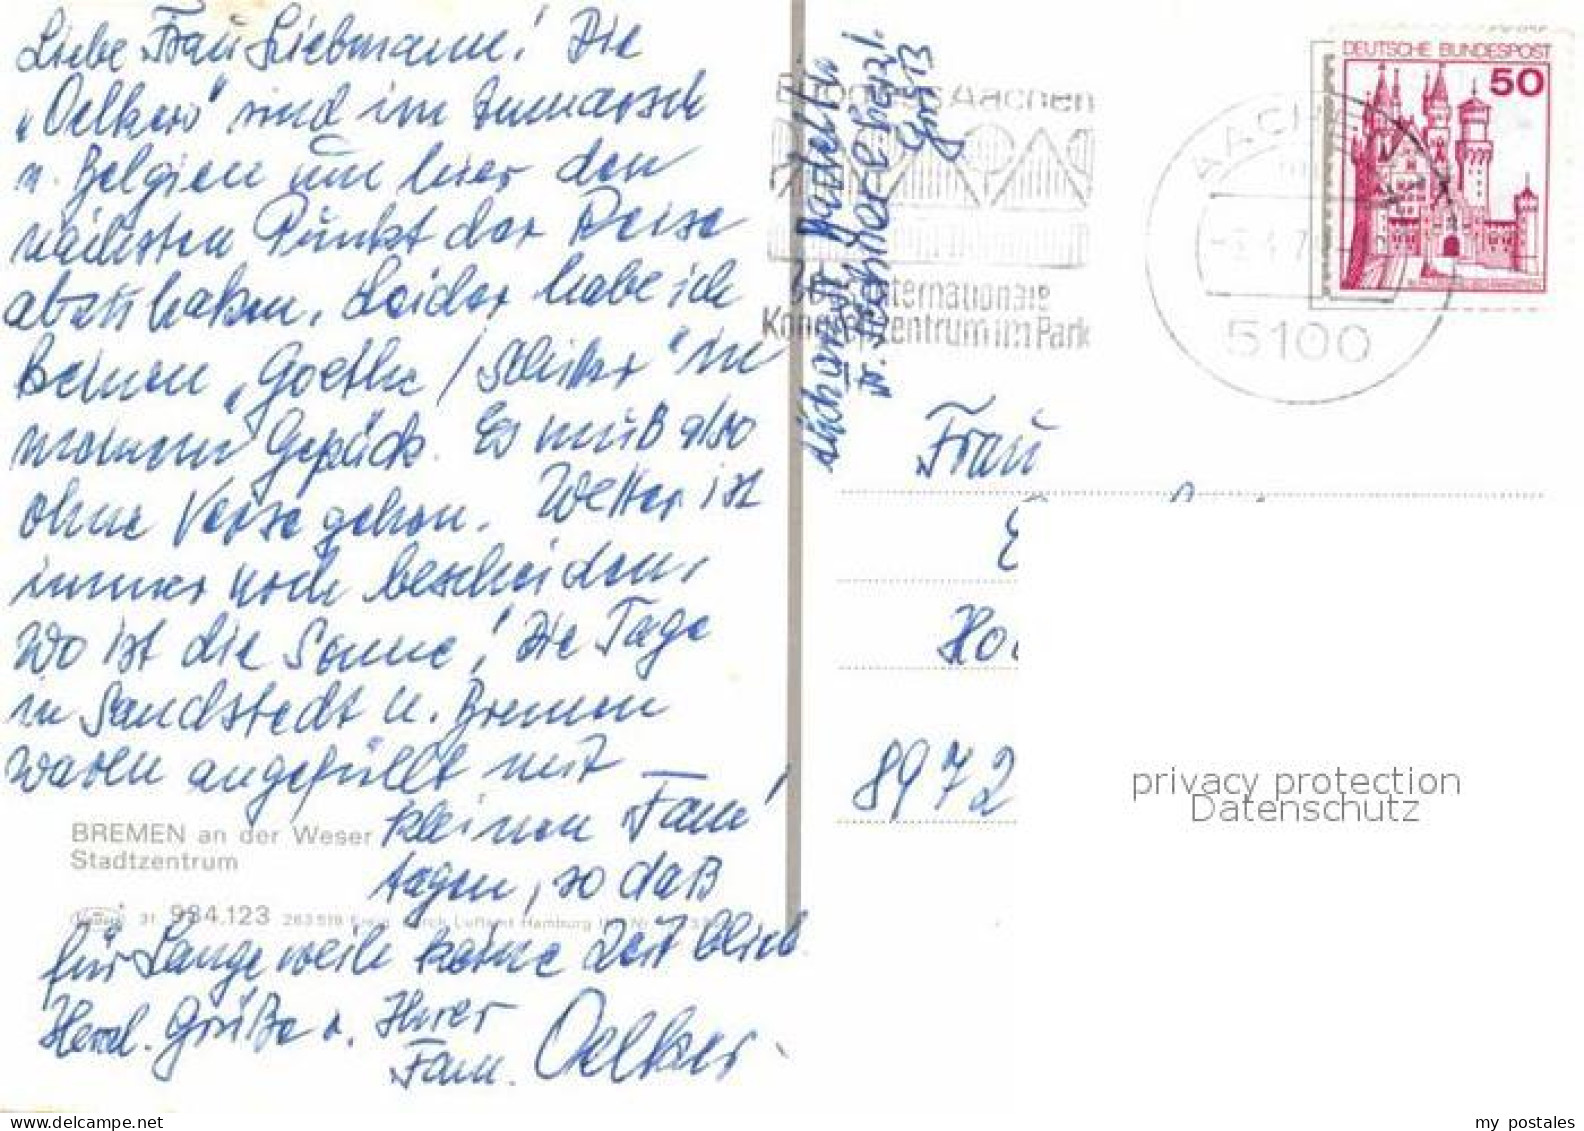 Liebe Frau Liebmann! Die
„Oelkers" sind im Anmarsch
n. Belgien um hier den
nächsten Punkt der Reise
abzuhaken. Leider habe ich
keinen „Goethe / Schiller" in
meinem Gepäck. Es muß also
ohne Verse gehen. Wetter ist
immer noch bescheiden,
Wo ist die Sonne! Die Tage
in Sandstedt u. Bremen
waren angefüllt mit
kleinen Fami
tagen, so daß
für Langeweile keine Zeit blieb.
Herzl. Grüße v. Ihrer
Fam. Oelker
BREMEN an der Weser
Stadtzentrum
31. 984.123
Aachen
Internationale
Kongreßzentrum im Park
AACHEN
5100
DEUTSCHE BUNDESPOST
50
Frau
8972
privacy protection
Datenschutz
my postales